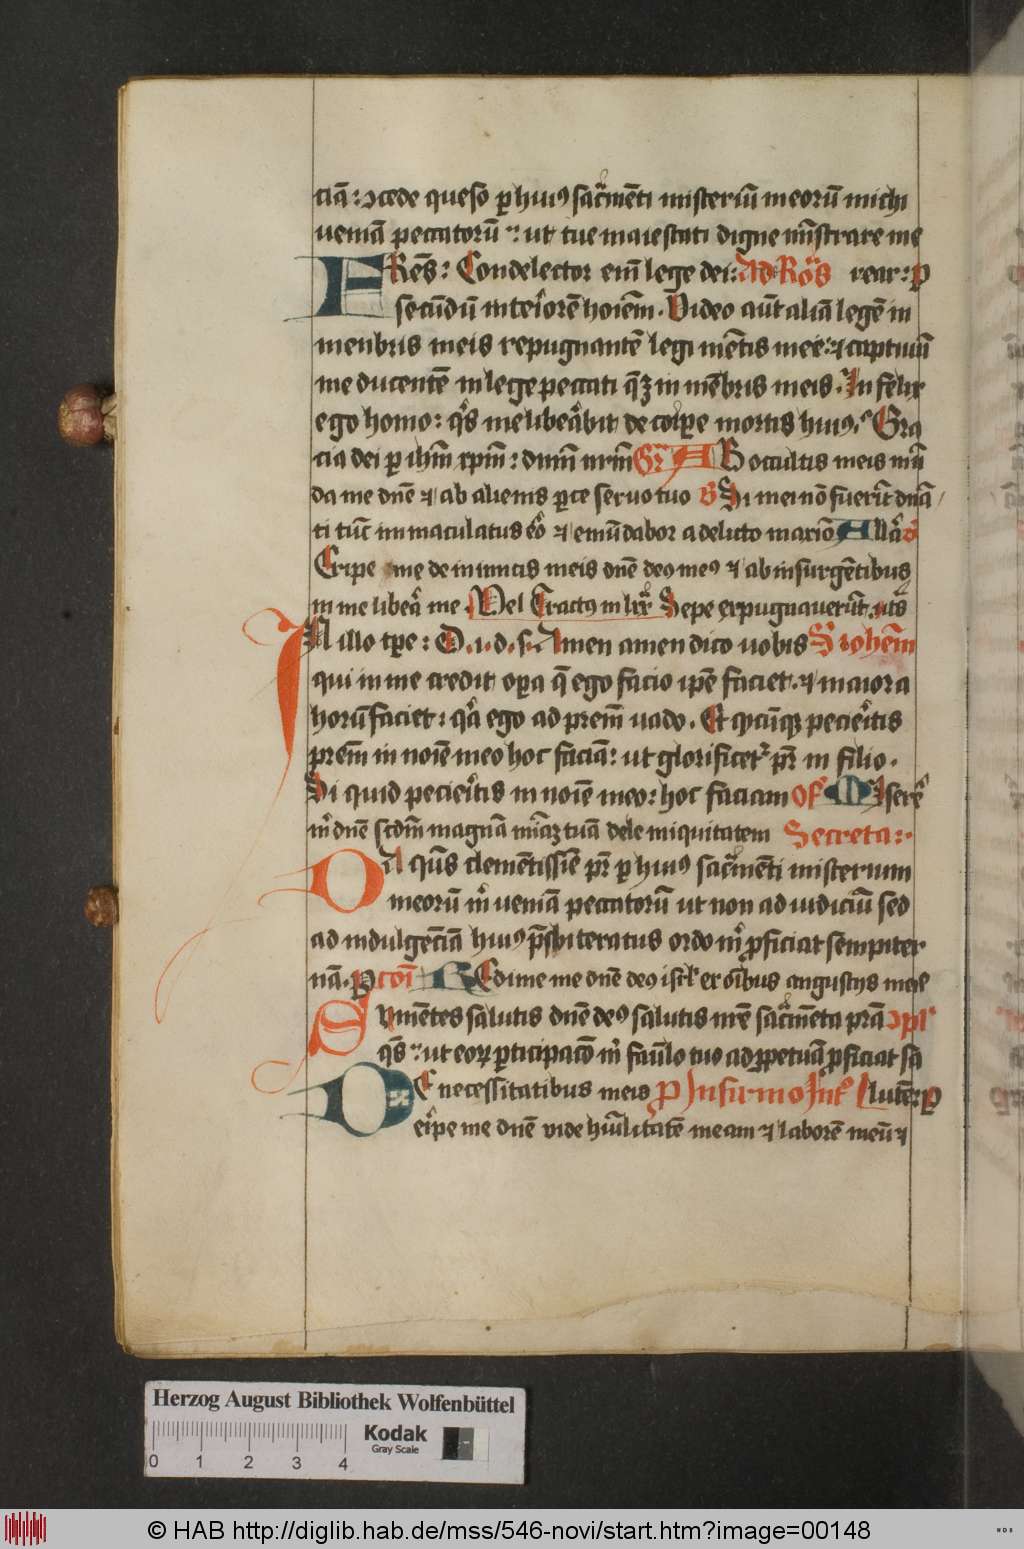 ciā: ↄcede queso ꝑ huiꝯ sacͣmēti misteriū meorū michi
veniā peccatorū ut tue maiestati digne mīstrare me
FRēs: Condelector enī lege dei: Ad Roͣs vear: ꝑ
secūdū interiͦorē hoīem. Video aūt aliā legē in
menbris meis repugnantē legi mētis mee: ⁊ captiuū
me ducentē in lege peccati q̄ꝫ in mēbris meis. In felix
ego homo: qͥs me libeͣbit de corꝑe mortis huiꝯ. Gra
cia dei ꝑ ihm̄ xpm̄: dnm̄ nrm̄ Gr̄ AB occultis meis mū
da me dnē ⁊ ab alienis ꝑce seruo tuo Si mei nō fuerīt dnā
ti tūc immaculatus eͦo ⁊ emūdabor a delicto maxīo Allͣa
Eripe me de inimicis meis dnē deꝯ meꝯ ⁊ ab insurgētibus
in me libeͣ me. Vel Tractꝯ in lxx Sepe expugnauerūt. utͣs
IN illo tꝑe: D. i. d. s. Amen amen dico uobis S iohem̄
qui in me credit oꝑa q̄ ego facio ipē faciet. ⁊ maiora
horū faciet: qͣ ego ad prem̄ uado. Et qͥcūqꝫ pecieͥtis
prem̄ in noīe meo hoc faciā: ut glorificetᷣ pr̄ in filio.
Si quid pecieͥtis in noīe meo: hoc faciam Of Misereͬ
mͥ dnē scdm̄ magnā mīaꝫ tuā dele iniquitatem Secreta:
DA qͣs clemētissīe pr̄ ꝑ huiꝯ sacͣmēti misterium
meorū mͥ veniā peccatorū ut non ad iudiciū sed
ad indulgēciā huiꝯ p̄sbiteratus ordo mͥ ꝓficiat sempiter
nā. Pꝯcōī REdime me dnē deꝯ isrͣl ex oībus angustijs meis
SUmētes salutis dnē deꝯ salutis nr̄e sacͣmēta prā ↄpl
qͣs ut eoꝝ ꝑticipacō mͥ famͣlo tuo ad ꝑpetuā ꝓficiat sā
DE necessitatibus meis P Infirmo Int lutē: ꝑ
eripe me dnē vide humͥlitatē meam ⁊ laborē meū ⁊
Herzog August Bibliothek Wolfenbüttel
Kodak
Gray Scale
0 1 2 3 4
© HAB http://diglib.hab.de/mss/546-novi/start.htm?image=00148